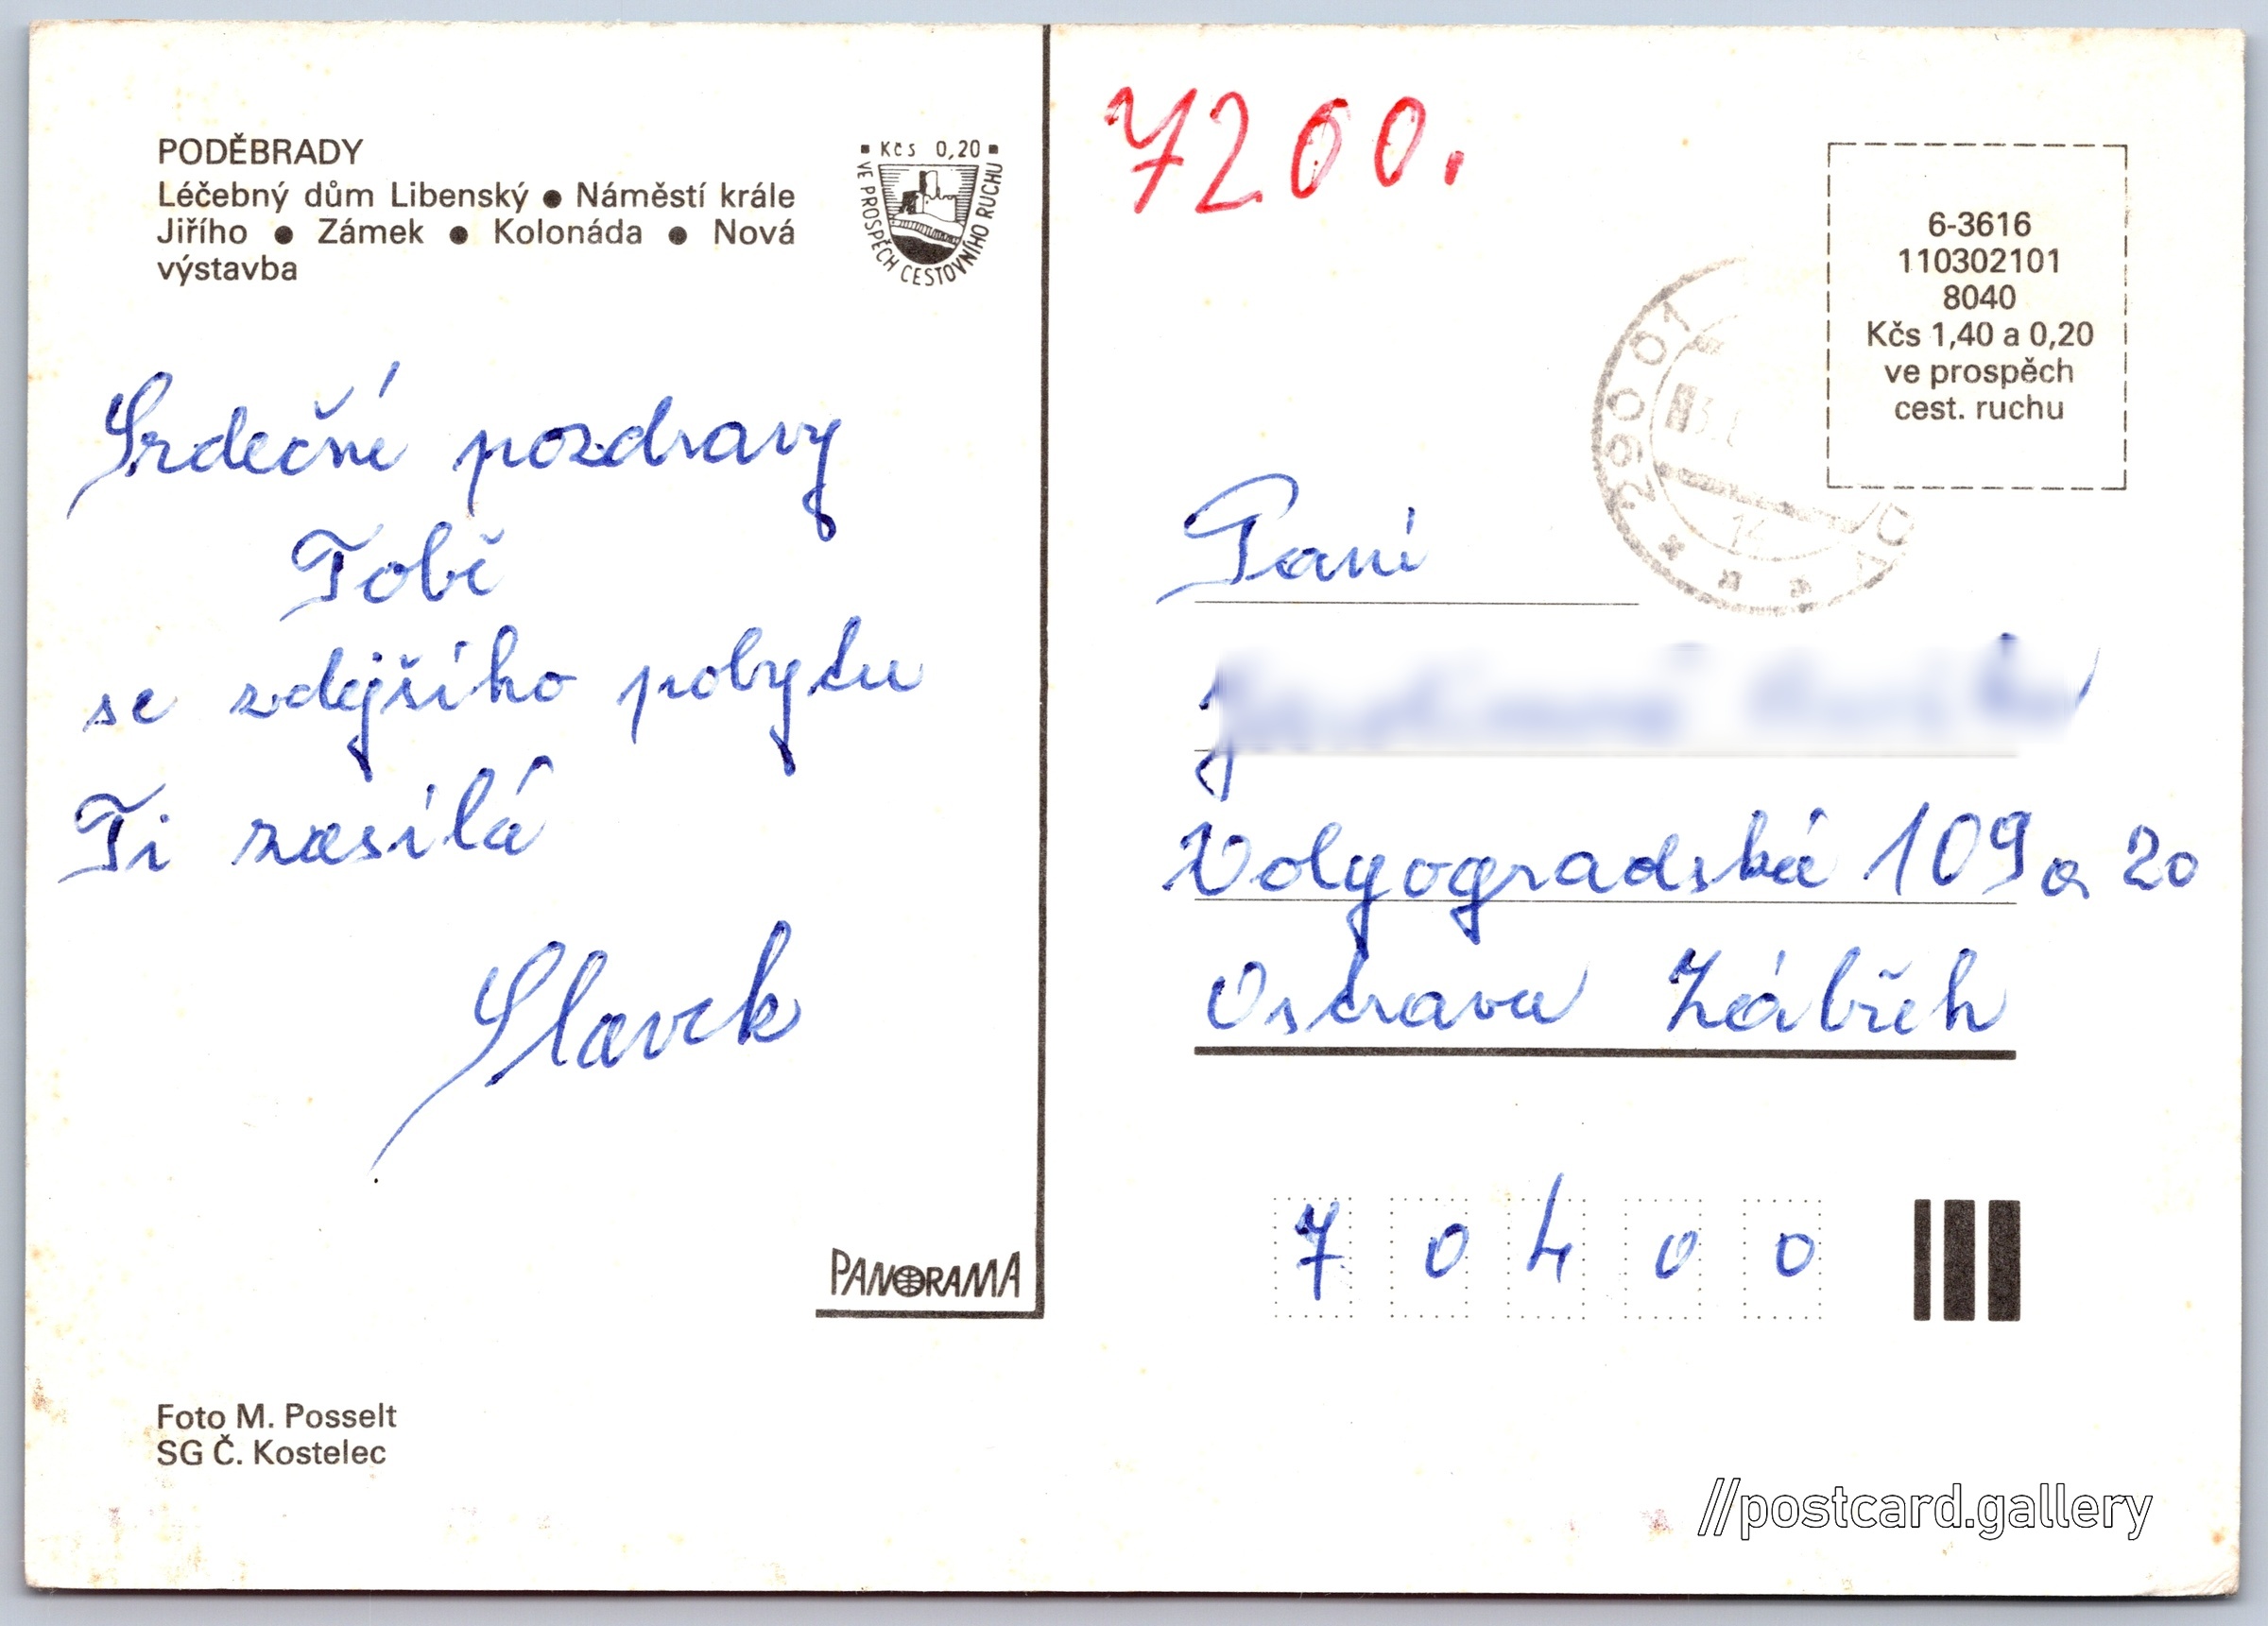 PODĚBRADY
Léčebný dům Libenský ● Náměstí krále
Jiřího ● Zámek ● Kolonáda ● Nová
výstavba
Kčs 0,20
VE PROSPĚCH CESTOVNÍHO RUCHU
Srdečné pozdravy
Tobě
se zdejšího pobytu
Ti zasílá
Slavek
PANORAMA
Foto M. Posselt
SG Č. Kostelec
7200.
6-3616
110302101
8040
Kčs 1,40 a 0,20
ve prospěch
cest. ruchu
290 01
14
Paní
Volgogradská 109 a 20
Ostrava Zábřeh
7 0 4 0 0
//postcard.gallery